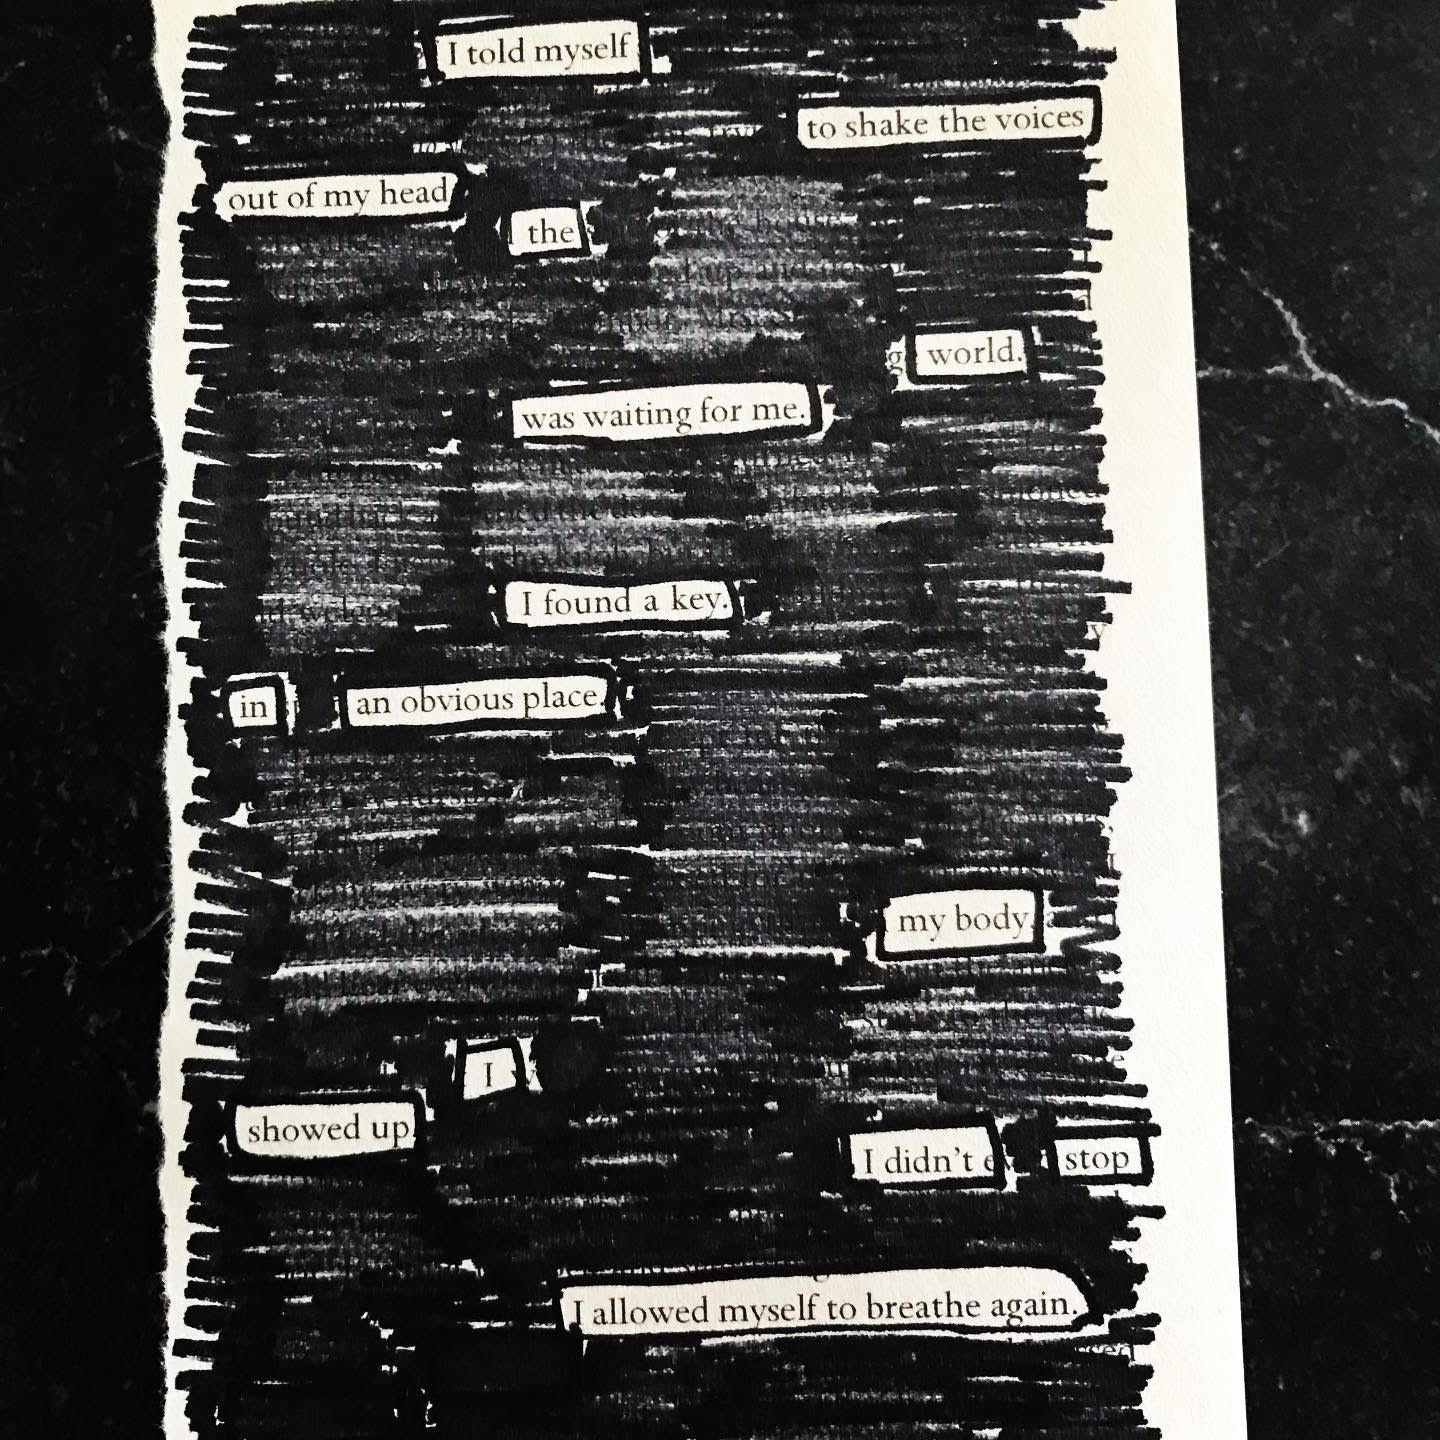 I told myself
to shake the voices
out of my head
the
world.
was waiting for me.
I found a key.
in an obvious place.
my body
I
showed up
I didn't stop
I allowed myself to breathe again.